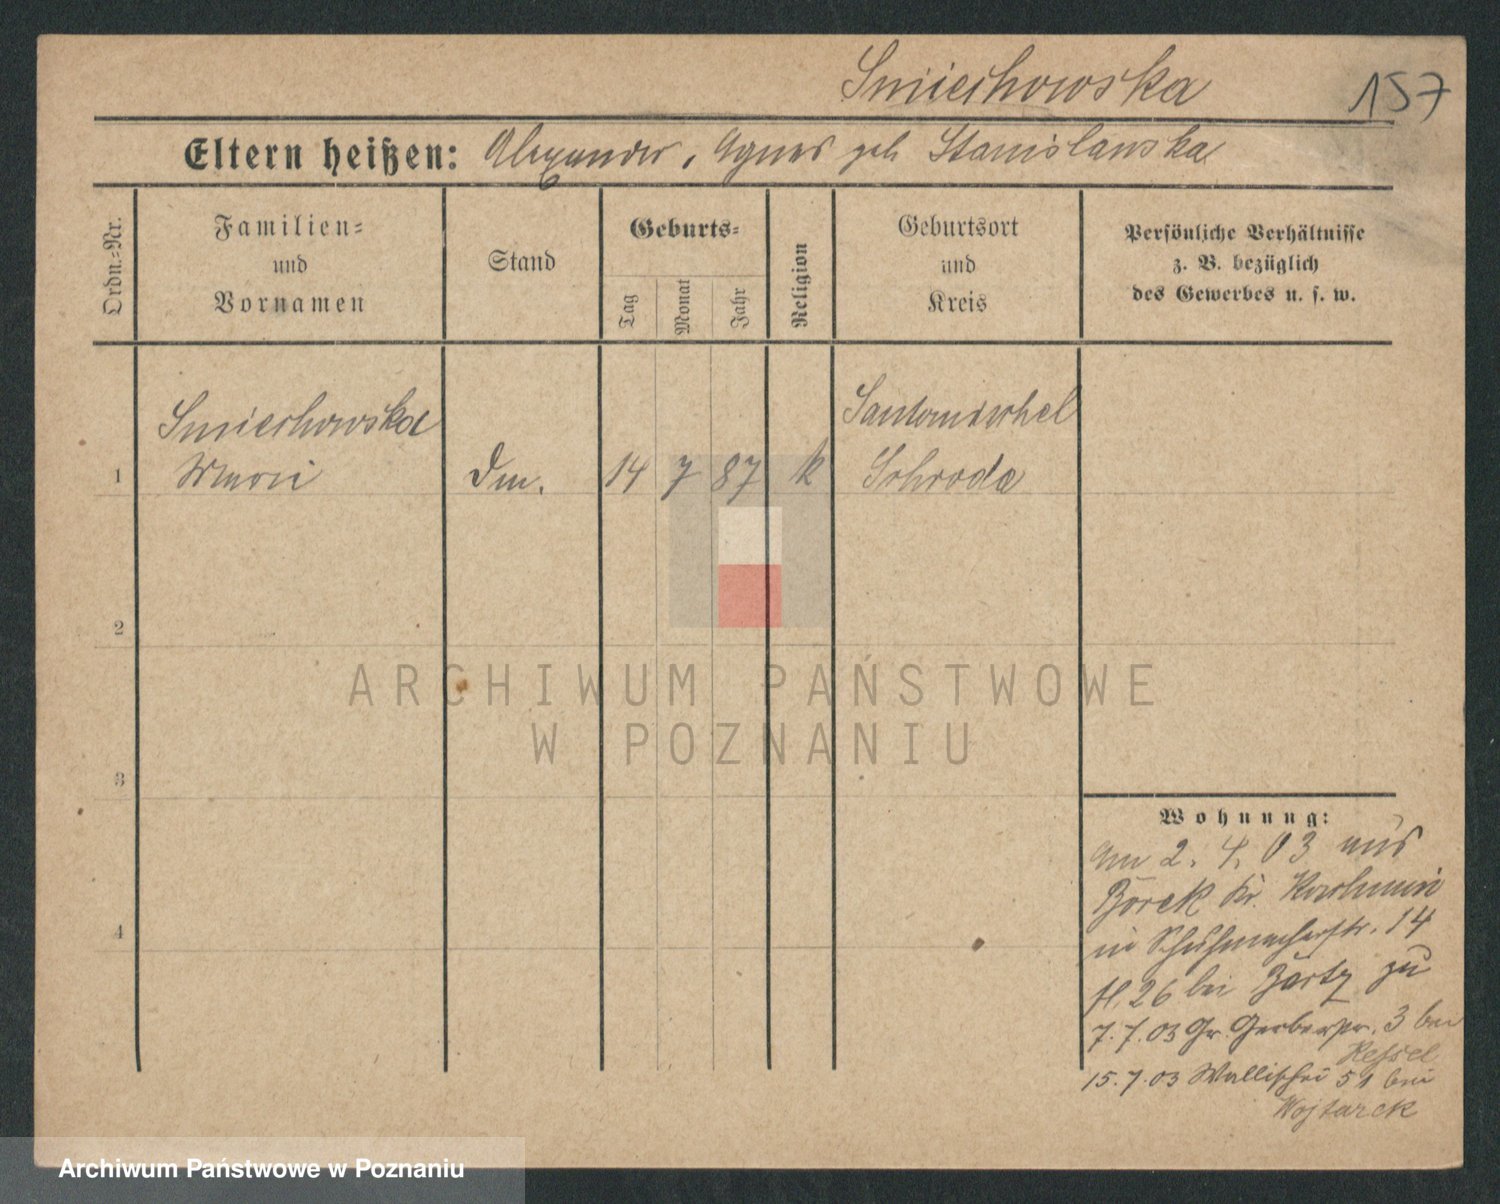 Smiechowska 157
Eltern heißen: Alexander, Agnes geb Stanislawska
Ordn.-Nr.
Familien-
und
Vornamen
Stand
Geburts-
Tag
Monat
Jahr
Religion
Geburtsort
und
Kreis
Persönliche Verhältnisse
z. B. bezüglich
des Gewerbes u. s. w.
Smiechowska Santomischel
1 Marie Dm. 14 7 87 k Schroda
2
3
4
ARCHIWUM PAŃSTWOWE
W POZNANIU
Wohnung:
am 2. 4. 03 aus
Borek Kr. Koschmin
in Schuhmacherstr. 14
bei zu
7.7.03 Gr. Gerberstr. 3 bei
Kessel
15.7.03 Wallischei 51 bei
Wojtarek
Archiwum Państwowe w Poznaniu